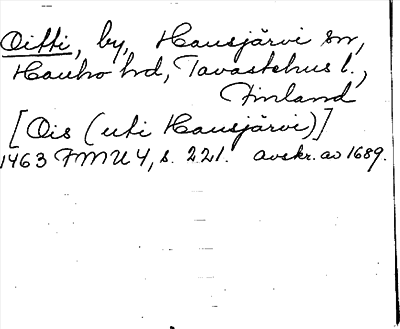 Oitti, by, Hausjärvi sn,
Hauho hd, Tavastehus l.,
Finland
[Ois (uti Hausjärvi)]
1463 FMU 4, s. 221. avskr. av 1689.